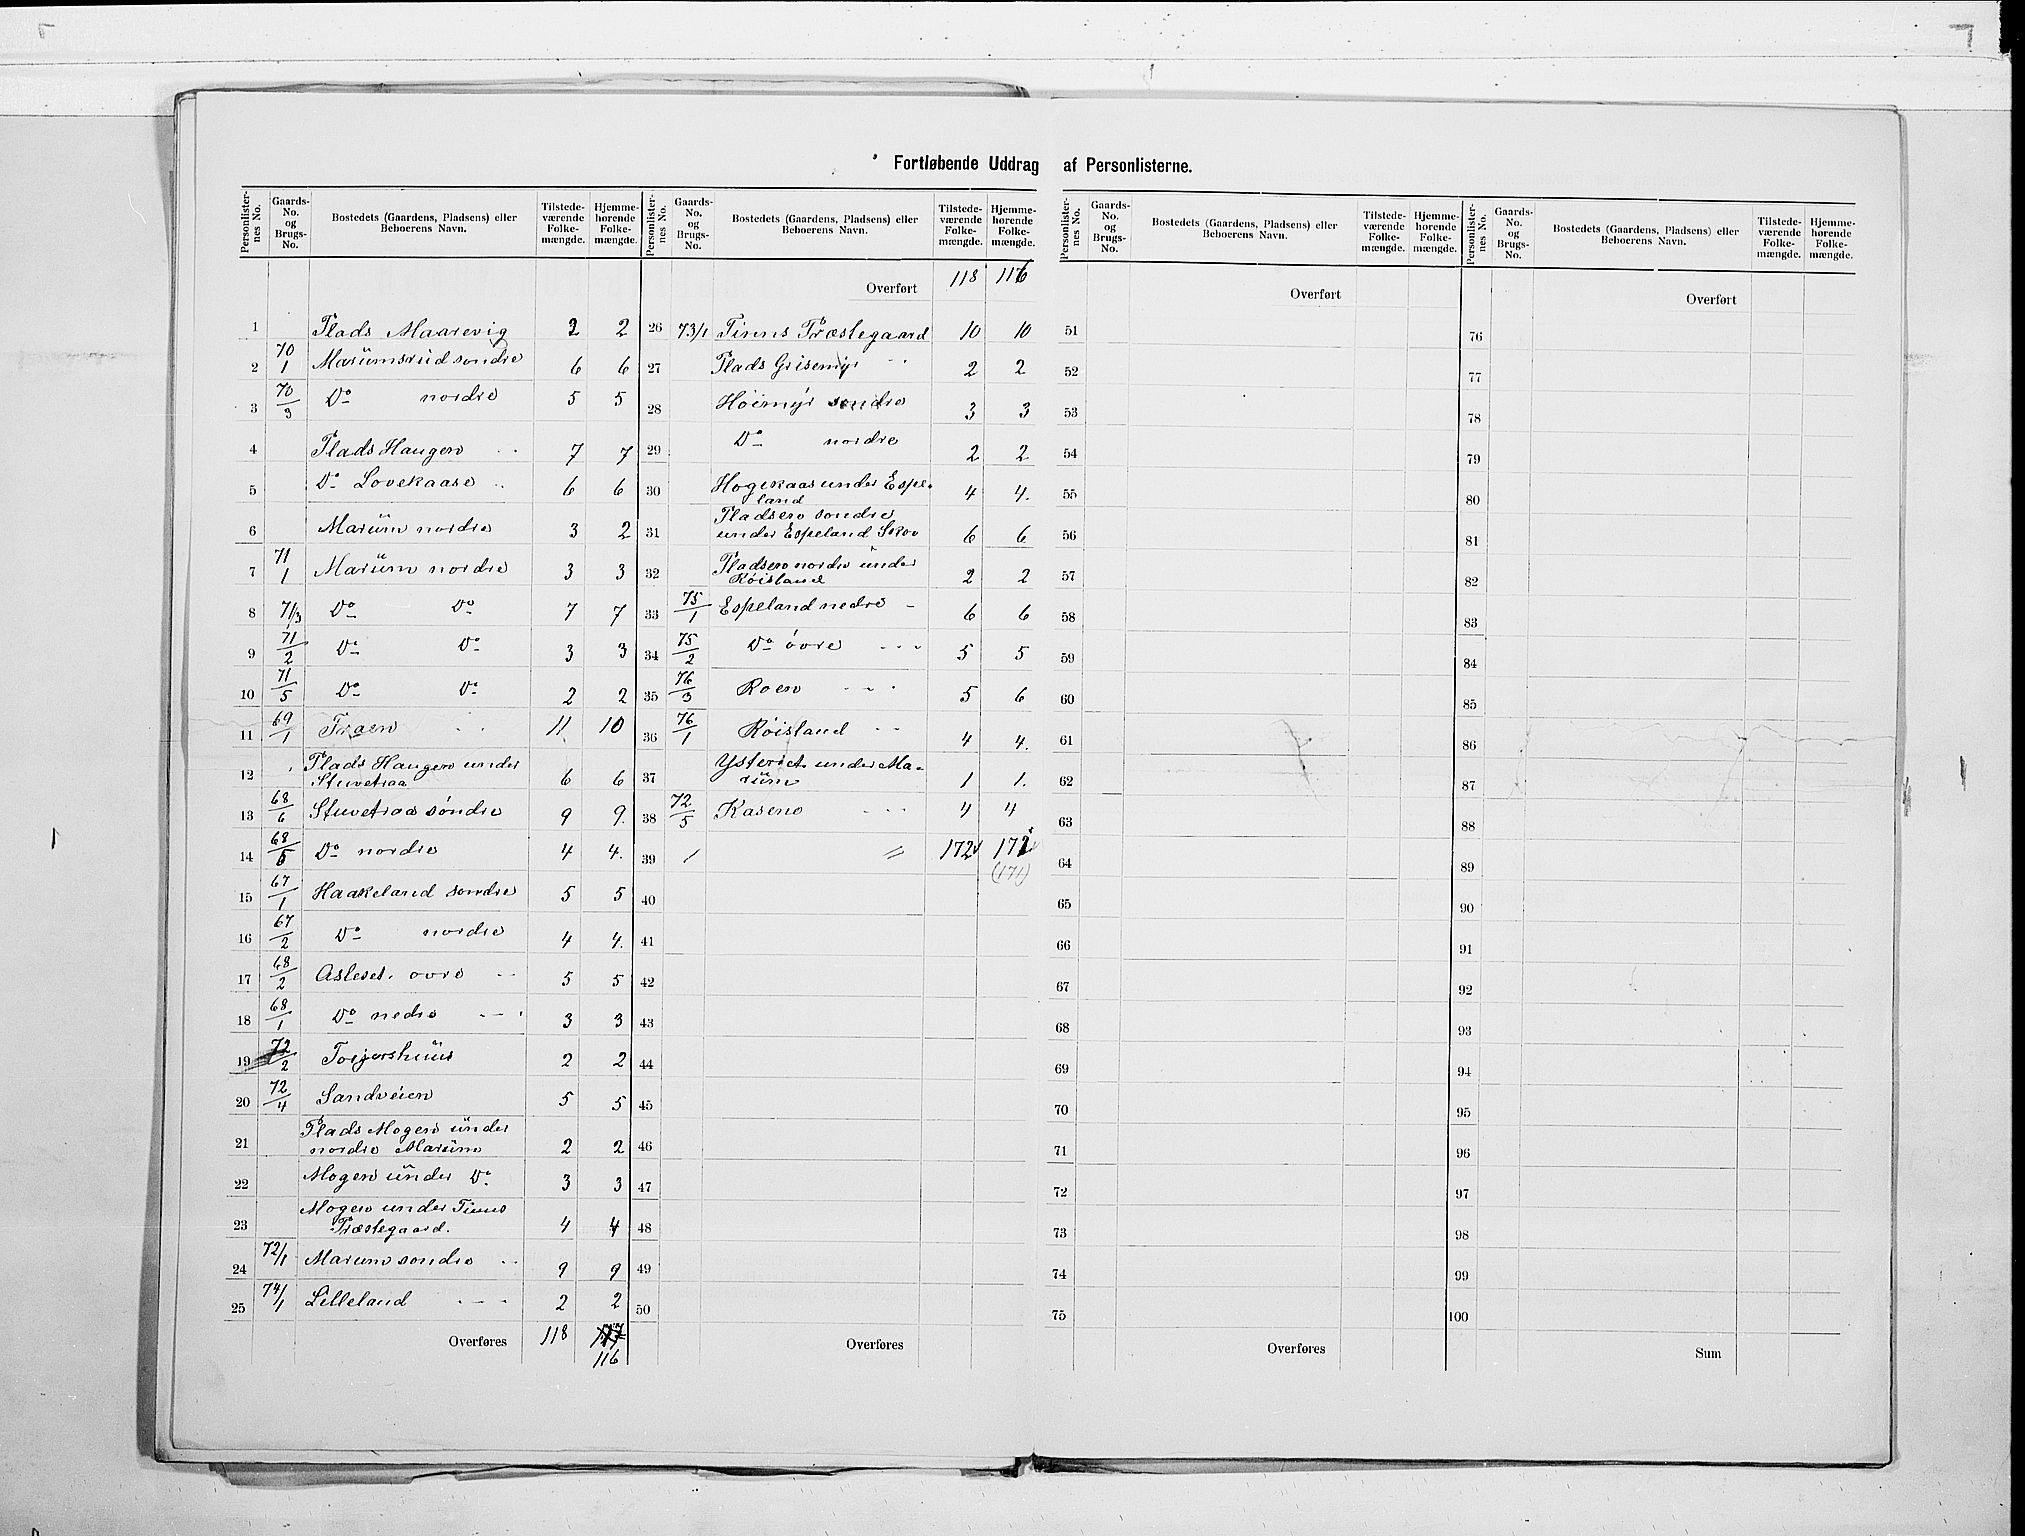 Fortløbende Uddrag af Personlisterne.
Personlister-nes No. | Gaards-No. og Brugs-No. | Bostedets (Gaardens, Pladsens) eller Beboerens Navn. | Tilstede-værende Folke-mængde. | Hjemme-hørende Folke-mængde.
1 | | Plads Maarevig | 2 | 2
2 | 70/1 | Marümsrud søndre | 6 | 6
3 | 70/3 | Do nordre | 5 | 5
4 | | Plads Haugen | 7 | 7
5 | | Do Lovekaase | 6 | 6
6 | | Marüm nordre | 3 | 2
7 | 71/1 | Marüm nordre | 3 | 3
8 | 71/3 | Do Do | 7 | 7
9 | 71/2 | Do Do | 3 | 3
10 | 71/5 | Do Do | 2 | 2
11 | 69/1 | Traen | 11 | 10
12 | | Plads Haugen under Stuvetraa | 6 | 6
13 | 68/6 | Stuvetraa søndre | 9 | 9.
14 | 68/5 | Do nordre | 4 | 4.
15 | 67/1 | Haakeland sondre | 5 | 5
16 | 67/2 | Do nordre | 4 | 4.
17 | 68/2 | Asleset ovre | 5 | 5
18 | 68/1 | Do nedre | 3 | 3
19 | 72/2 | Torjershüus | 2 | 2
20 | 72/4 | Sandveien | 5 | 5
21 | | Plads Mogen ünder nordre Marüm | 2 | 2
22 | | Mogen ünder Do | 3 | 3
23 | | Mogen under Tinns Præstegaard. | 4 | 4
24 | 72/1 | Marum sondre | 9 | 9
25 | 74/1 | Lilleland | 2 | 2
Overføres | 118 | 116
Personlister-nes No. | Gaards-No. og Brugs-No. | Bostedets (Gaardens, Pladsens) eller Beboerens Navn. | Tilstede-værende Folke-mængde. | Hjemme-hørende Folke-mængde.
Overført | 118 | 116
26 | 73/1 | Tinns Præstegaard | 10 | 10
27 | | Plads Grisemyr | 2 | 2
28 | | Høimyr søndre | 3 | 3
29 | | Do nordre | 2 | 2
30 | | Hogekaas under Espeland | 4 | 4.
31 | | Pladsen sondre under Espeland Skov | 6 | 6
32 | | Pladsen nordre ünder Røisland | 2 | 2
33 | 75/1 | Espeland nedre | 6 | 6
34 | 75/2 | Do óvre | 5 | 5
35 | 76/3 | Roen | 5 | 6
36 | 76/1 | Røisland | 4 | 4.
37 | | Ysteriet under Marüm | 1 | 1.
38 | 72/5 | Kasene | 4 | 4
39 | / | = | 172 | 172
(171)
40
41
42
43
44
45
46
47
48
49
50
Overføres
Personlister-nes No. | Gaards-No. og Brugs-No. | Bostedets (Gaardens, Pladsens) eller Beboerens Navn. | Tilstede-værende Folke-mængde. | Hjemme-hørende Folke-mængde.
Overført
51
52
53
54
55
56
57
58
59
60
61
62
63
64
65
66
67
68
69
70
71
72
73
74
75
Overføres
Personlister-nes No. | Gaards-No. og Brugs-No. | Bostedets (Gaardens, Pladsens) eller Beboerens Navn. | Tilstede-værende Folke-mængde. | Hjemme-hørende Folke-mængde.
Overført
76
77
78
79
80
81
82
83
84
85
86
87
88
89
90
91
92
93
94
95
96
97
98
99
100
Sum